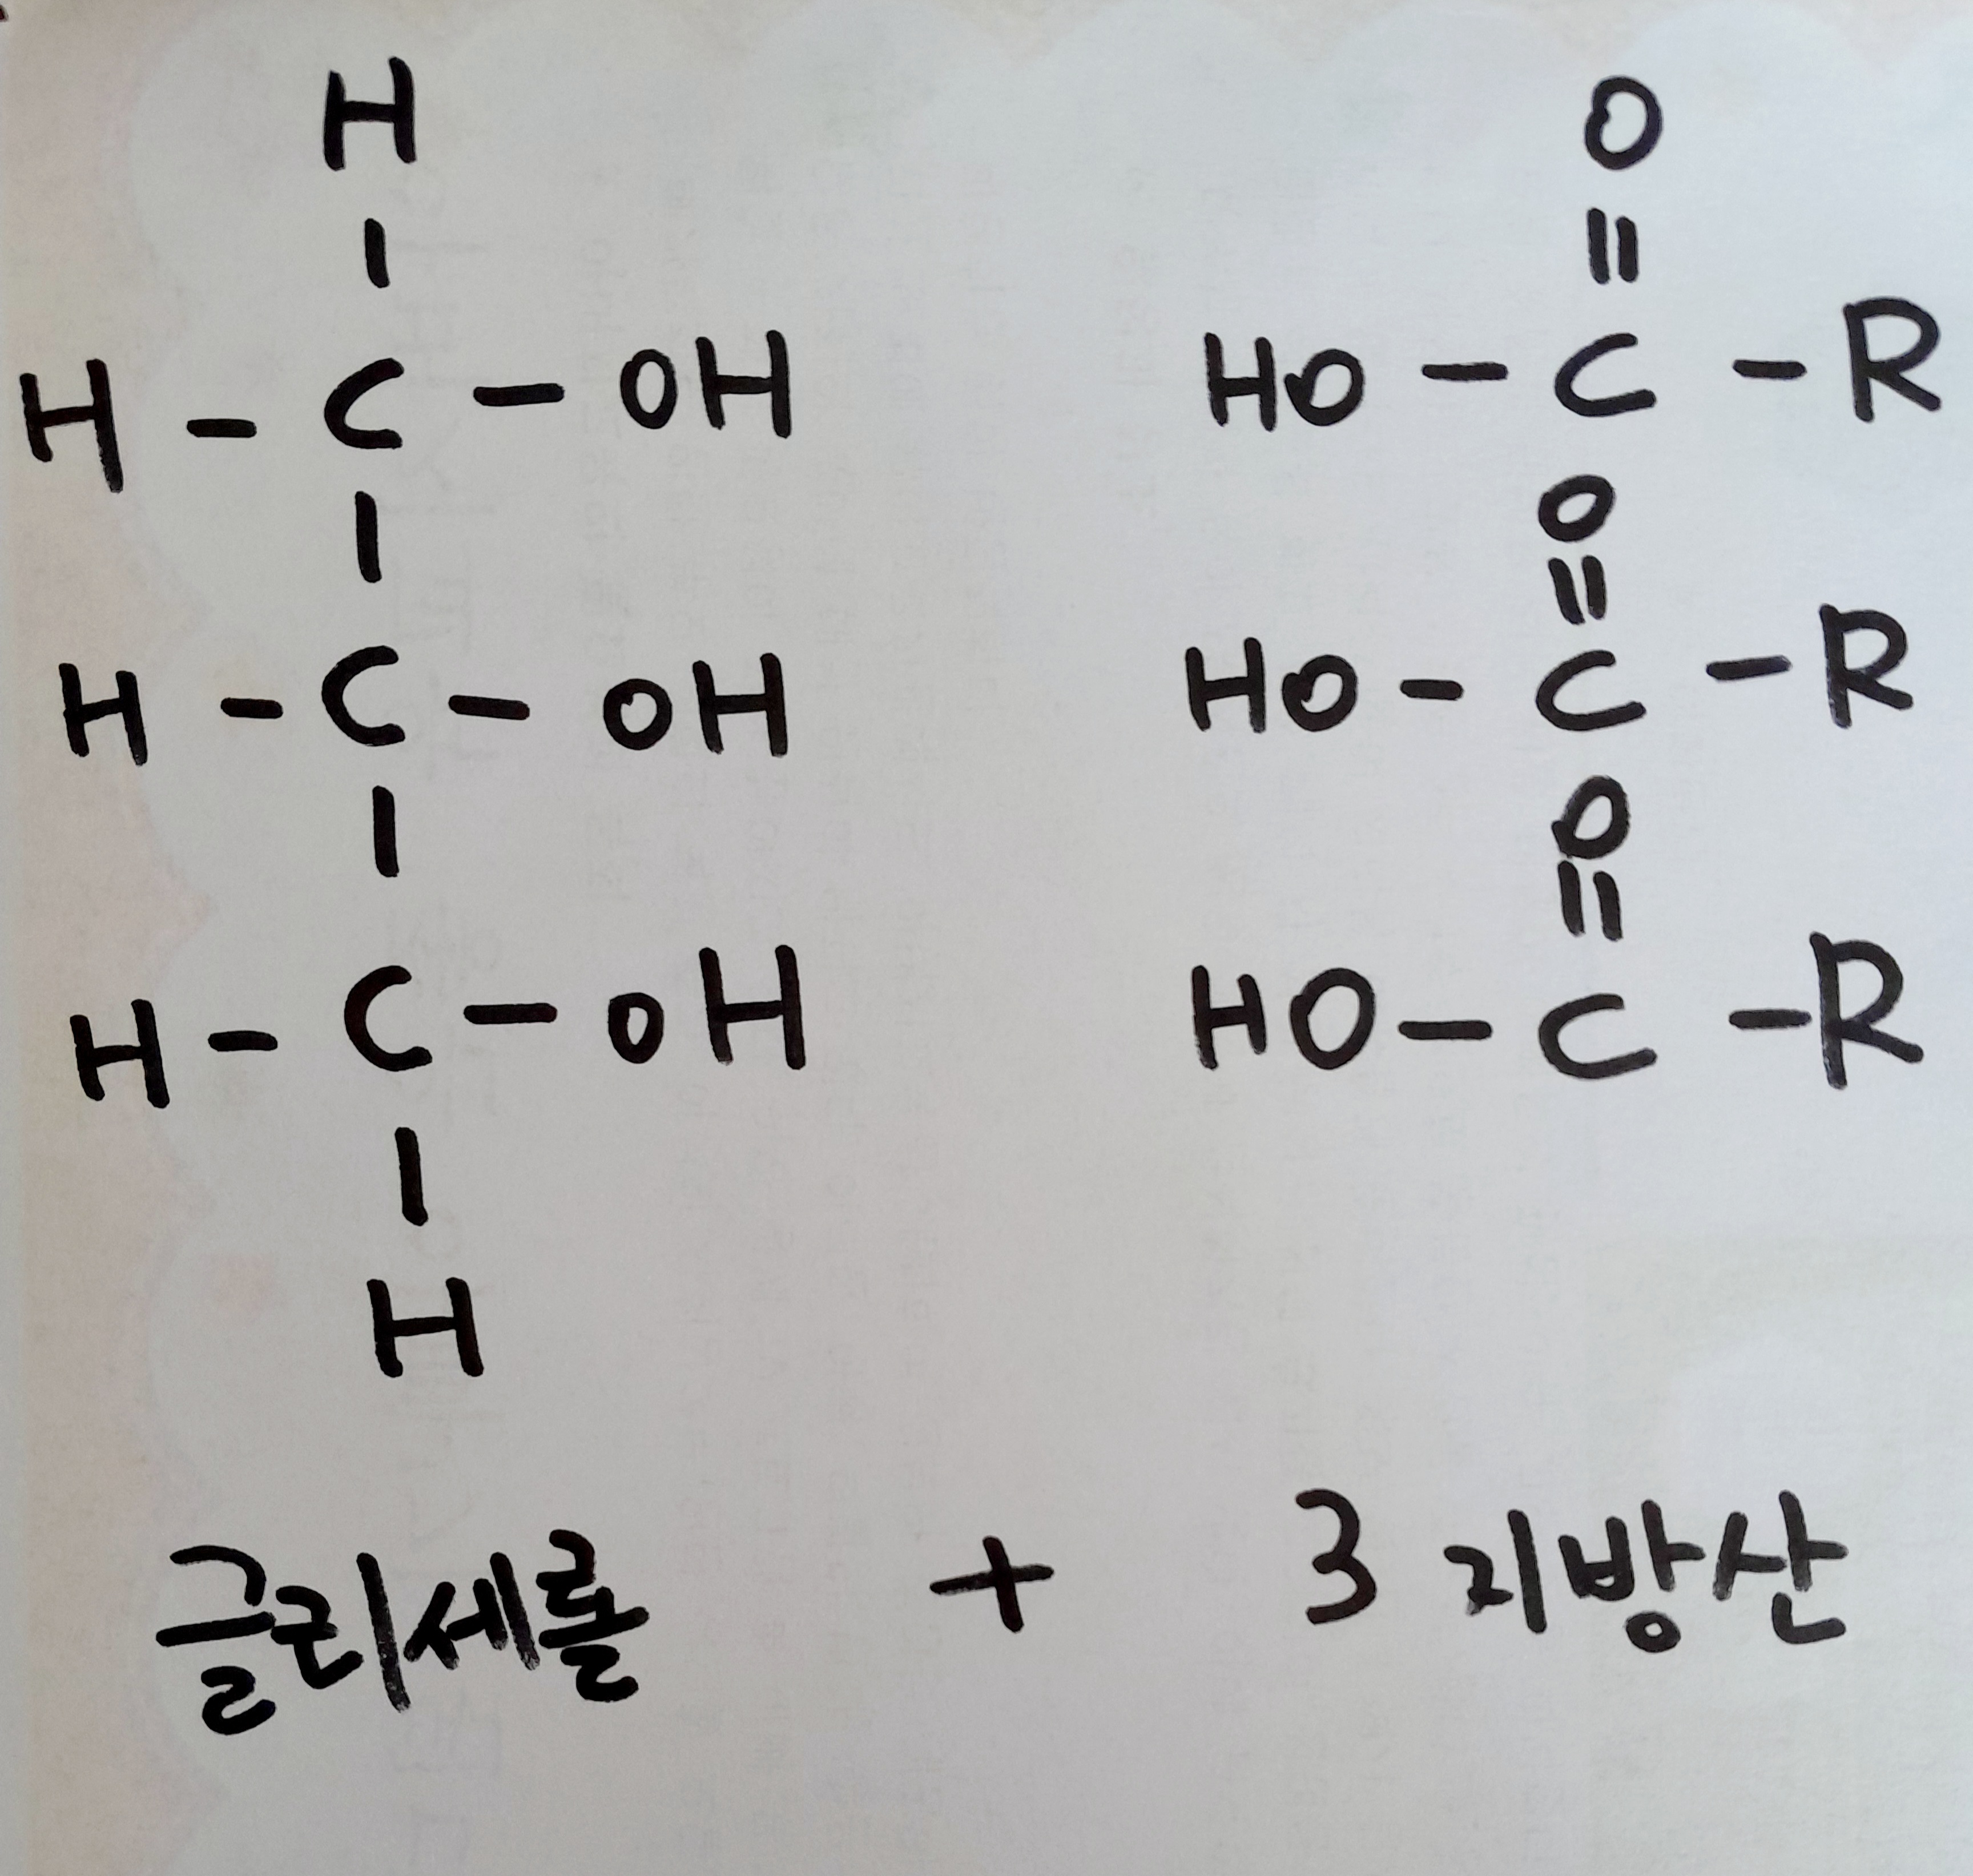 H O
| ||
H - C - OH HO - C - R
| O
||
H - C - OH HO - C - R
| O
||
H - C - OH HO - C - R
|
H
글리세롤 + 3 지방산